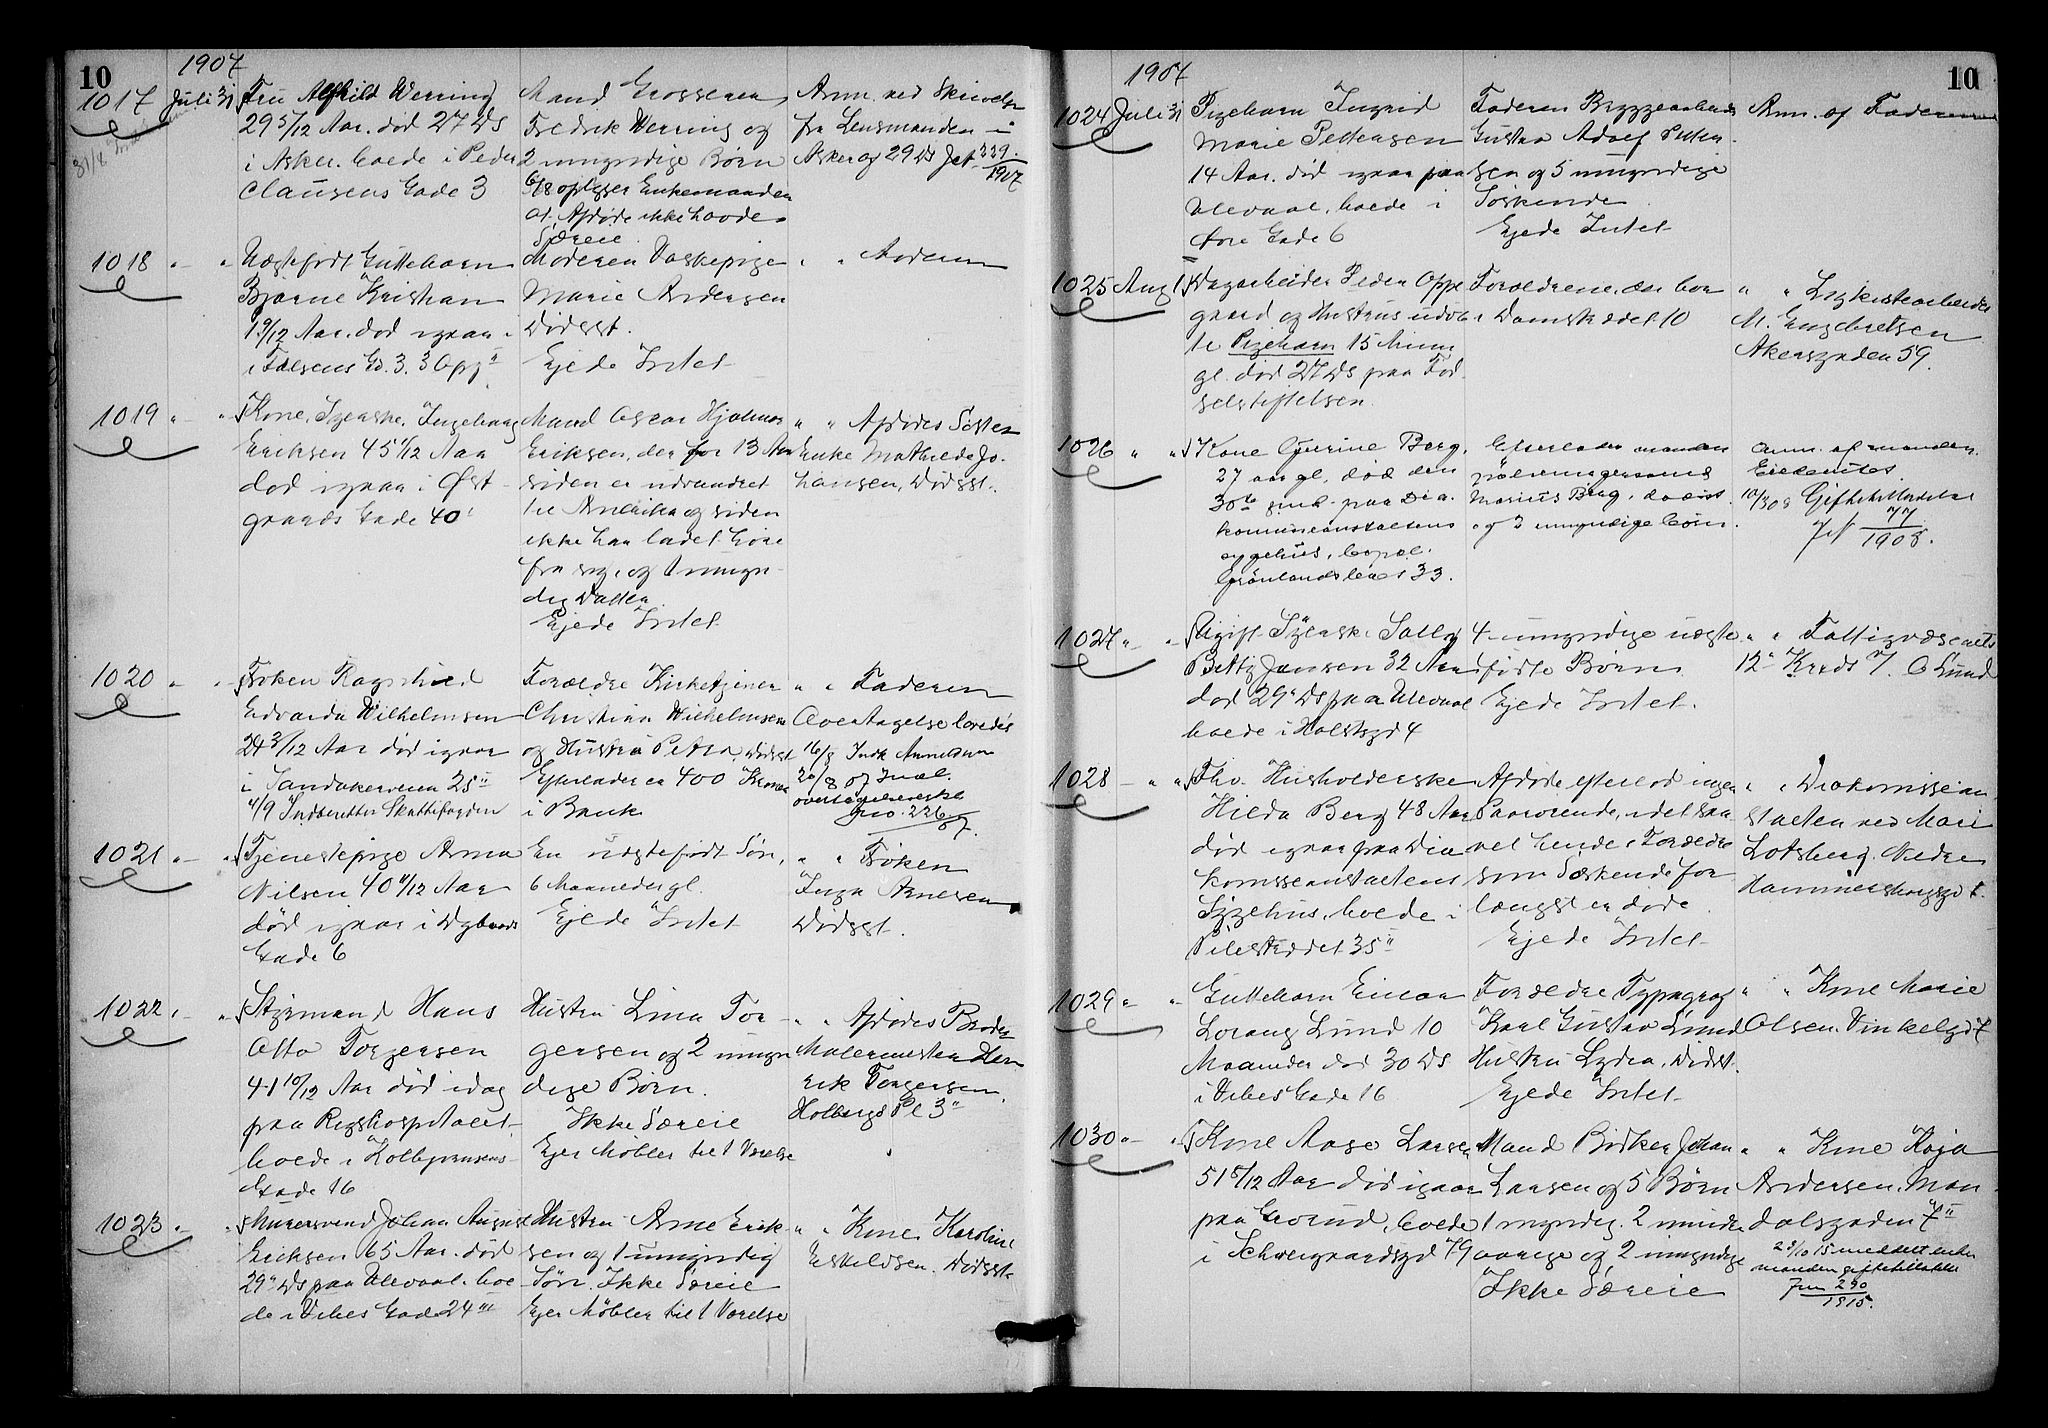 10
1907
1017 Juli 31 Fru Alfhild Werring
29 5/12 Aar. død 27 Ds
i Asker. boede i Peder
Clausens Gade 3
Mand Grosserer
Fredrik Werring og
2 umyndige Børn
6/8 oplyser Enkemanden
at Afdøde ikke havde
Særeie
Anm. ved Skrivelse
fra Lensmanden i
Asker og 29 Ds Jct 339
1907
1018 " " Uægtefødt Guttebarn
Bjarne Kristian
1 9/12 Aar. død igaar
i Falsens Gd. 3. 3 Opg
Moderen Vaskepige
Marie Andersen
Dødsst.
Ejede Intet
" " Moderen
1019 " " Kone, Svenske, Ingeborg
Eriksen 45 1/12 Aar
død igaar i Øst-
gaards Gade 40
Mand Oscar Hjalmar
Eriksen, der for 13 Aar
siden er udvandret
til Amerika og siden
ikke har ladet høre
fra sig, og 1 umyn-
dig Datter
Ejede Intet
" " Afdødes Søster
Enke Mathilde Jo-
hansen, Dødsst.
1020 " " Frøken Ragnhild
Edvarda Wilhelmsen
24 3/12 Aar død igaar
i Sandakerveien 25 II
4/9 Indberettes Skattefogden
Forældre Kirketjener
Christian Wilhelmsen
og Hustru Petra, Dødsst
Efterlader ca 400 Kroner
i Bank
" " Faderen
Overtagelse lovedes
16/8 Indk Anmelderen
20/8 og Indl.
overtagelseserkl
Jno. 226/07.
1021 " " Tjenestepige Anna
Nilsen 40 11/12 Aar
død igaar i Dybvads
Gade 6
En uægtefødt Søn,
6 Maaneder gl.
Ejede Intet
" " Frøken
Inga Arnesen
Dødsst.
1022 " " Styrmand Hans
Otto Torgersen
41 10/12 Aar død idag
paa Rigshospitalet,
boede i Kolbjørnsens
Gade 16
Hustru Lina Tor-
gersen og 2 umyn
dige Børn.
Ikke Særeie
Ejer Møbler til 1 Værelse
" " Afdødes Broder
Malermester Hen
rik Torgersen,
Holbergs Pl 3 II
1023 " " Murersvend Johan August
Eriksen 65 Aar. død
29 Ds paa Ulevaal. boe-
de i Vibes Gade 24 III
Hustru Arne Erik-
sen og 1 umyndig
Søn. Ikke Særeie
Ejer Møbler til 1 Værelse
" " Kone Karoline
Eskildsen. Dødsst.
10
1907
1024 Juli 31 Pigebarn Ingrid
Marie Pettersen
14 Aar. død igaar paa
Ulevaal, boede i
Øvre Gade 6
Faderen Bryggearbeider
Gustav Adolf Petter-
sen og 5 umyndige
Søskende
Ejede Intet
Anm. af Faderen
1025 Aug 1 Dagarbeider Peder Oppe
gaard og Hustrus udøb-
te Pigebarn 15 Minu
gl. død 27 Ds paa Fød-
selsstiftelsen.
Forældrene, der bor
i Damstrædet 10
" " Ligkistearbeider
M. Engebretsen
Akersgaden 59.
1026 " " Kone Gurine Berg,
27 aar gl, død den
30te juli paa Dia-
konisseanstaltens
sygehus, bopæl:
Grønlandsleret 33.
Efterlader manden
Marius Berg, dødsst
og 2 umyndige børn.
Anm. af manden.
10/308 Giftetilladelse
Jct 77
1908.
1027 " " Ugift Svenske Sally
Betty Jansen 32 Aar
død 29 Ds paa Ulevaal
boede i Holstsgd 4
4 umyndige uægte
fødte Børn
Ejede Intet.
" " Fattigvæsenets
12 Kreds v/ O Lund
1028 " " Fhv. Husholderske
Hilda Berg 48 Aar
død igaar paa Dia
konisseanstaltens
Sygehus, boede i
Pilestrædet 35 II
Afdøde efterlod ingen
Paarørende, idet saa-
vel hende Forældre
som Søskende for
længst er døde.
Ejede Intet
" " Diakonissean-
stalten ved Mari
Lotsberg. Nedre
1029 " " Guttebarn Einar
Lorang Lund 10
Maaneder død 30 Ds
i Vibes Gade 16
Forældre Typograf
Karl Gustav Lund
Hustru Lydia, Dødsst.
Ejede Intet
" " Kone Marie
Olsen. Vinkelgd 7
1030 " " Kone Aase Larsen
51 5/12 Aar død igaar
paa Grorud, boede
i Schweigaardsgd 79
Mand Bødker Johan
Larsen og 5 Børn
1 myndig. 2 minder
aarige og 2 umyndige
Ikke Særeie
" " Kone Kaja
Andersen. Man-
dalsgaden 7 II
23/10 15 meddelt enke
manden giftetilladelse
Jrn 290
1915.